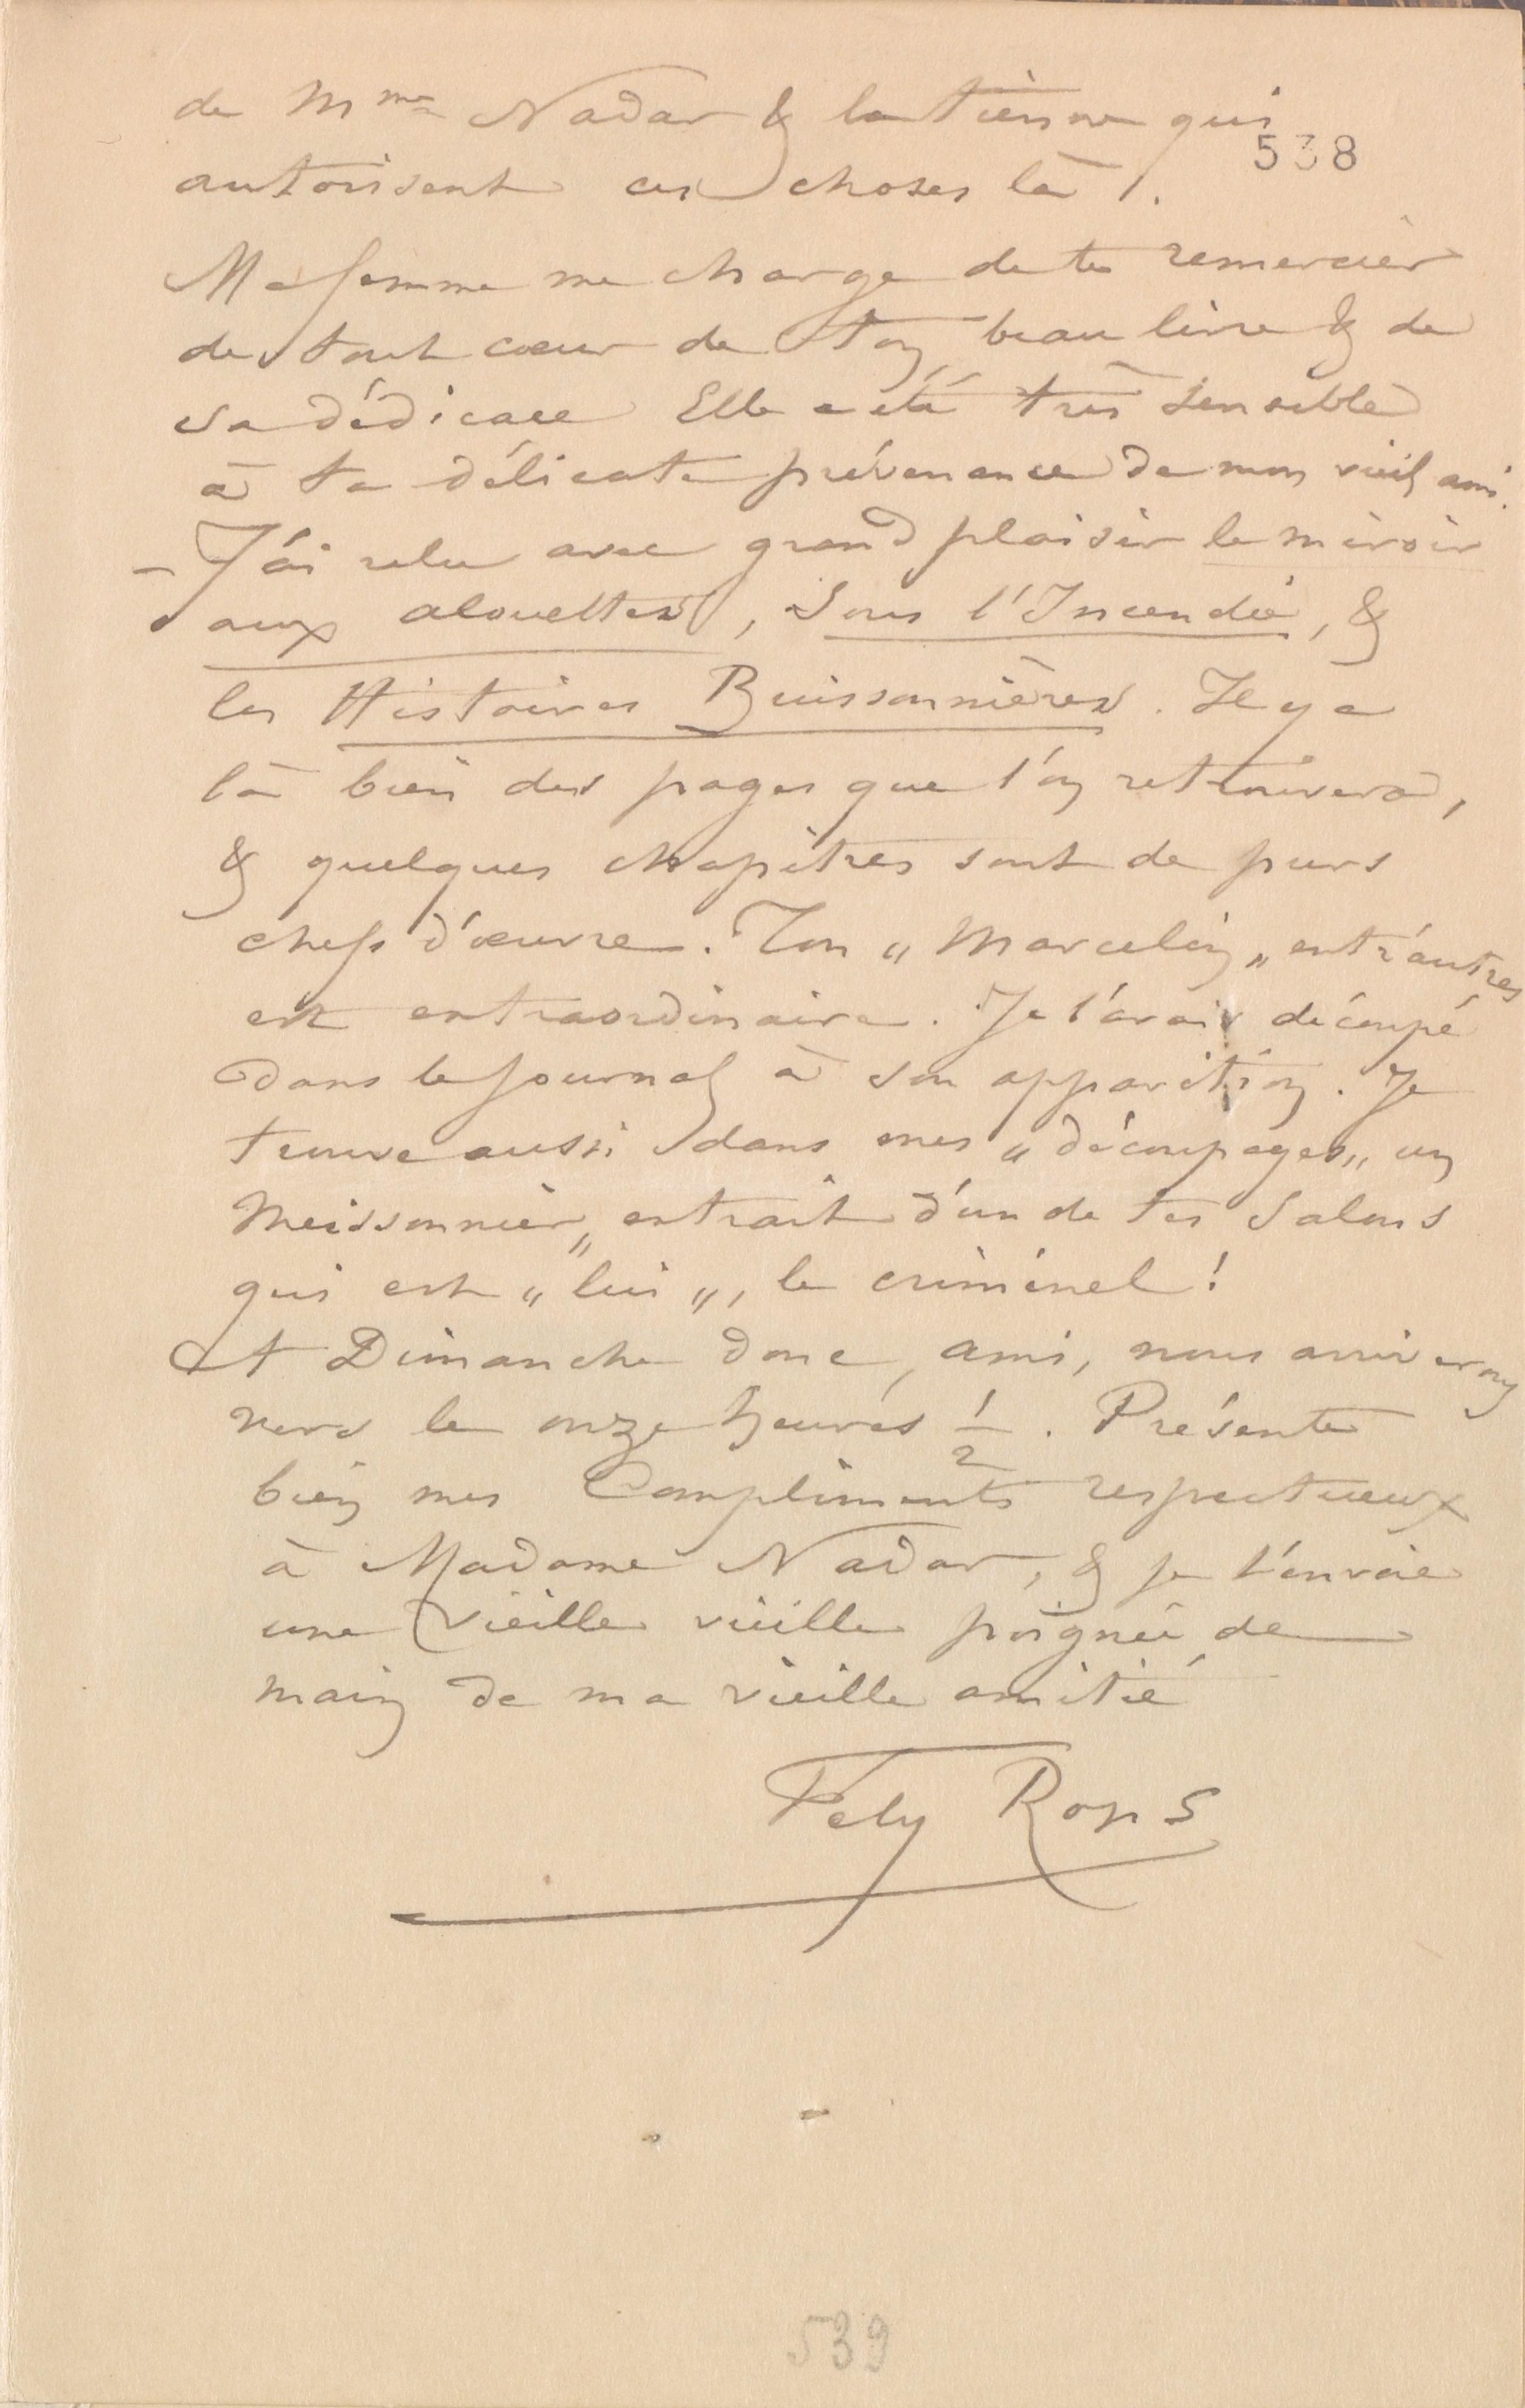 de Mme Nadar & la tienne qui
538
autorisent ces choses là !.
Ma femme me charge de te remercier
de tout cœur de ton beau livre & de
sa dédicace Elle a été très sensible
à ta délicate prévenance de mon vieil ami.
– J'ai relu avec grand plaisir le miroir
aux alouettes, Sous l'Incendie, &
les Histoires Buissonnières. Il y a
là bien des pages que l'on retrouvera,
& quelques chapitres sont de purs
chefs d'œuvre. Ton „ Marcelin „ entr'autres
est extraordinaire. Je l'avais découpé
dans le journal à son apparition. Je
trouve aussi dans mes „ découpages „ un
Meissonnier „ extrait d'un de tes Salons
qui est „ lui „, le criminel !
A Dimanche donc, ami, nous arriverons
vers le onze heures 1/2. Présente
bien mes Compliments respectueux
à Madame Nadar, & je t'envoie
une vieille vieille poignée de
main de ma vieille amitié
Fely Rops
539